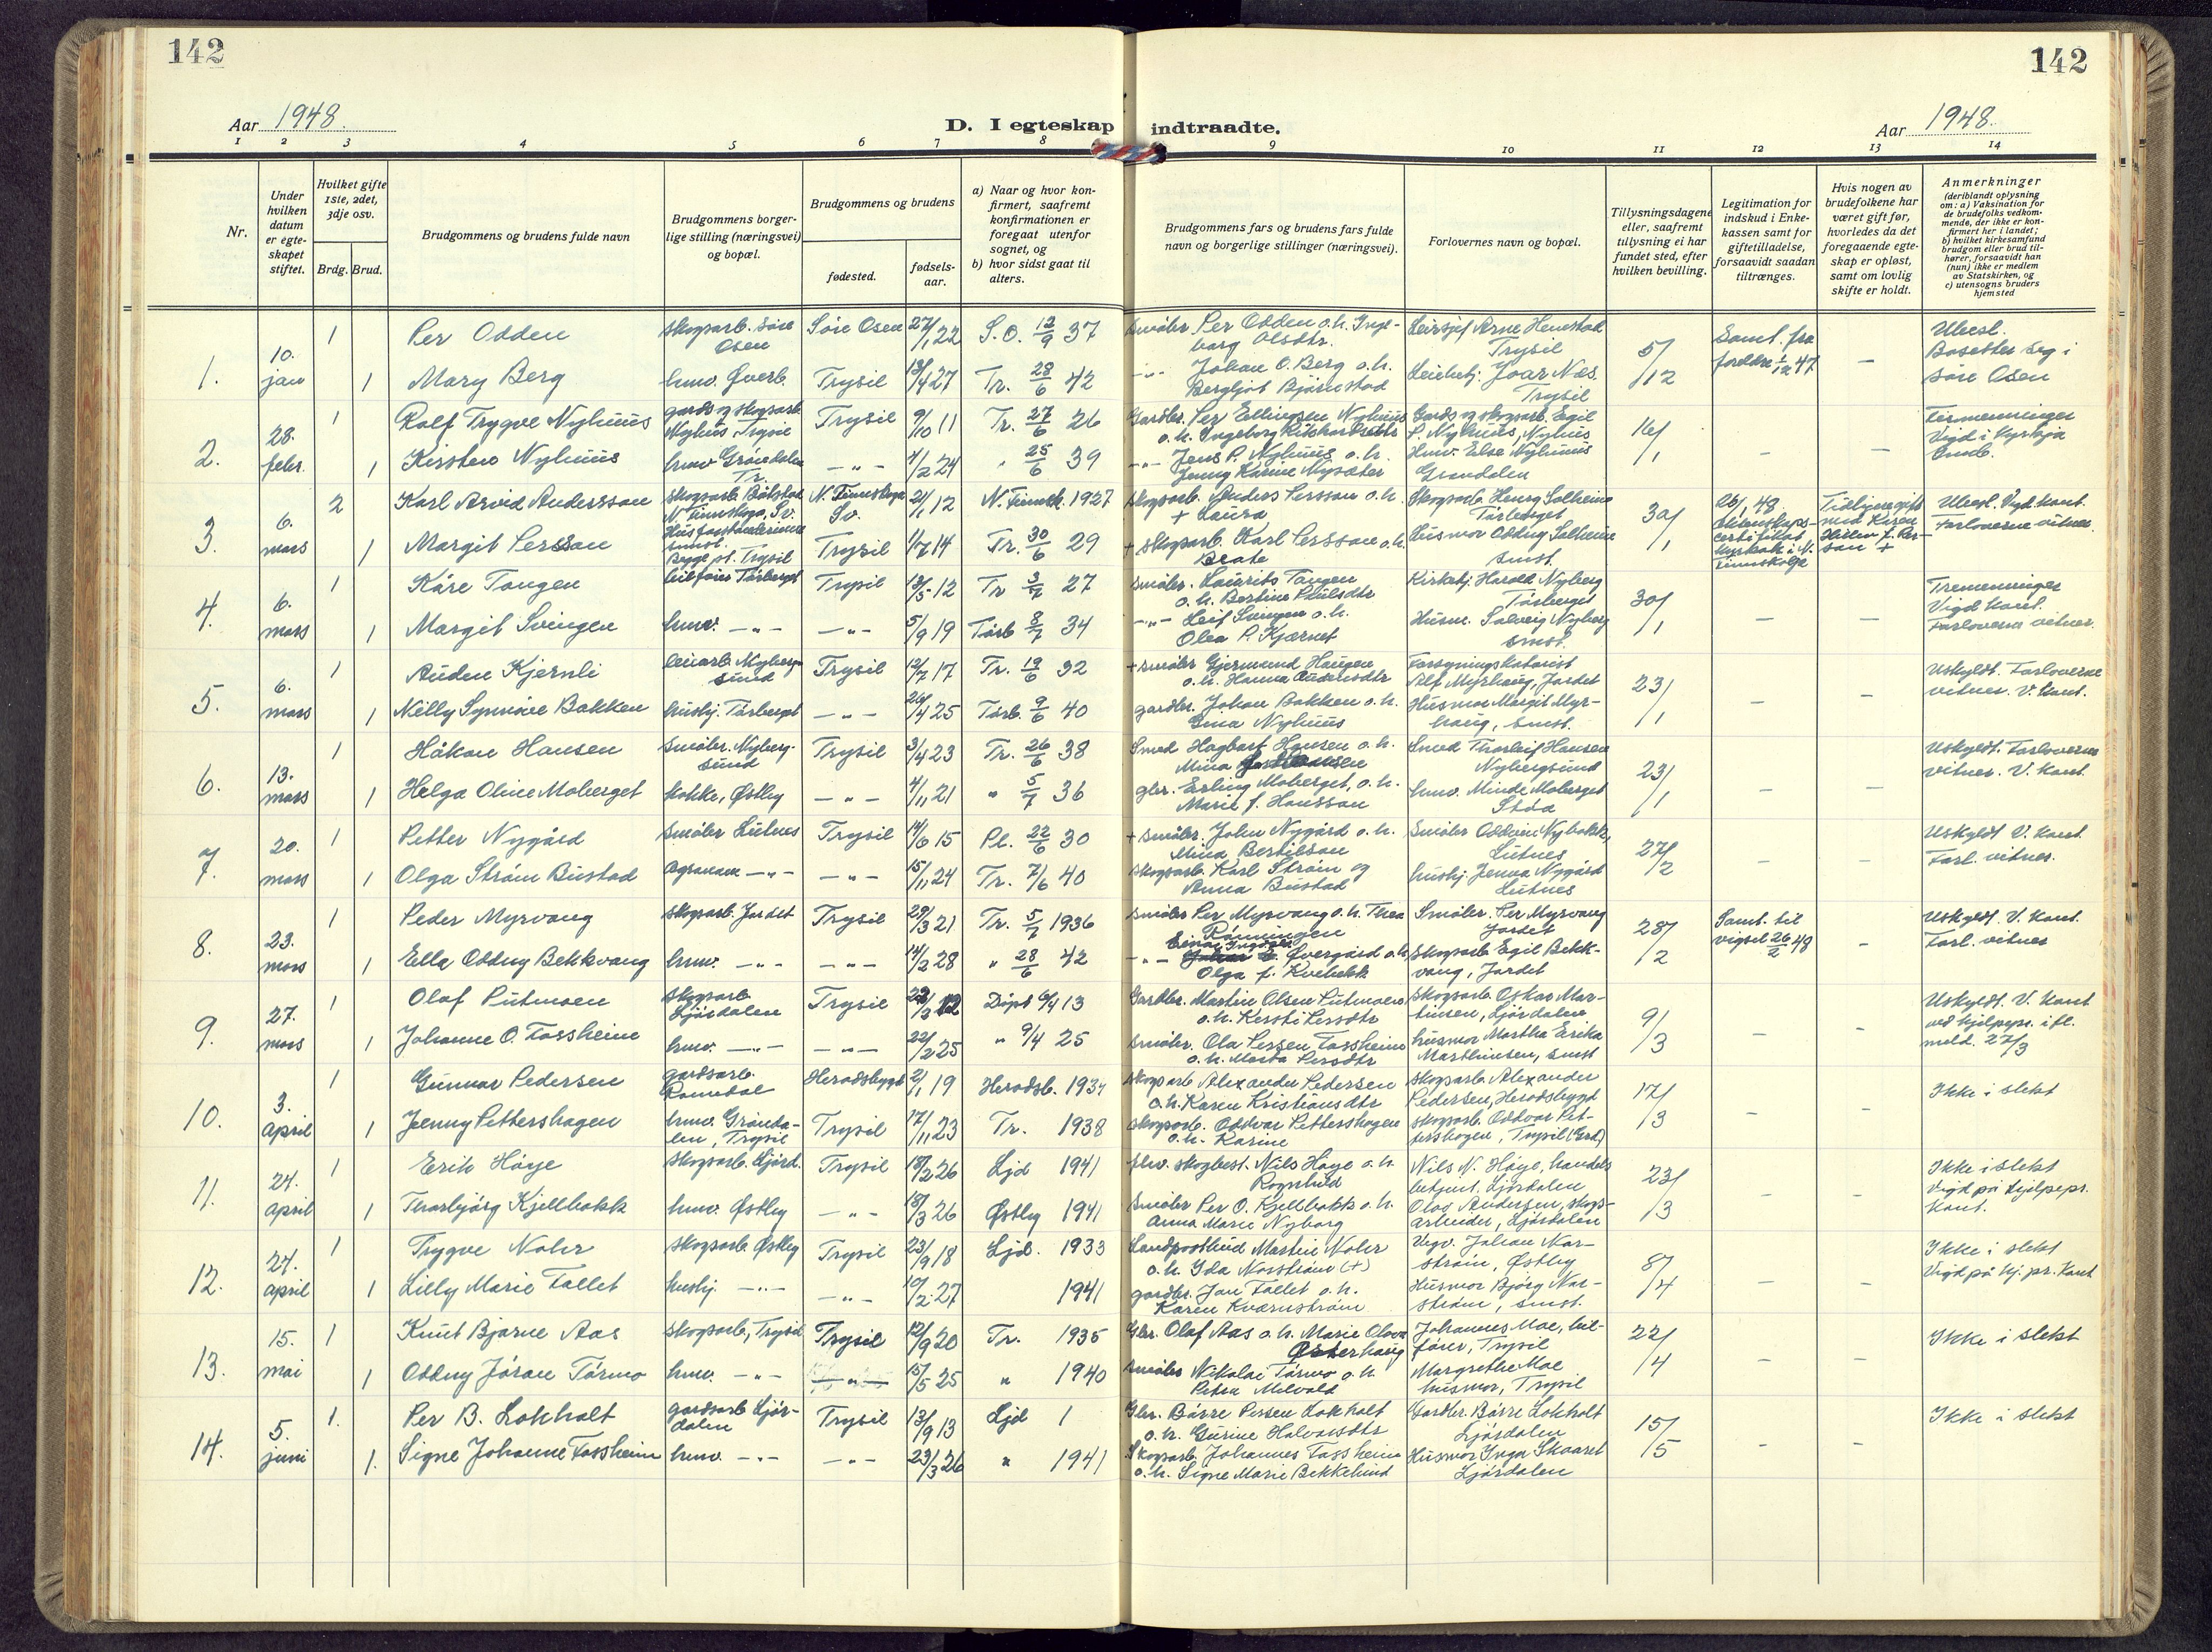 142
142
Aar 1948.
D. I egteskap indtraadte.
Aar 1948.
1 2 3 4 5 6 7 8 9 10 11 12 13 14
Nr.
Under hvilken datum er egteskapet stiftet.
Hvilket gifte 1ste, 2det, 3dje osv.
Brdg. Brud.
Brudgommens og brudens fulde navn
Brudgommens borgerlige stilling (næringsvei) og bopæl.
Brudgommens og brudens
fødested.
fødselsaar.
a) Naar og hvor konfirmert, saafremt konfirmationen er foregaat utenfor sognet, og
b) hvor sidst gaat til alters.
Brudgommens fars og brudens fars fulde navn og borgerlige stillinger (næringsvei).
Forlovernes navn og bopæl.
Tillysningsdagene eller, saafremt tillysning ei har fundet sted, efter hvilken bevilling.
Legitimation for indskud i Enkekassen samt for giftetilladelse, forsaavidt saadan tiltrænges.
Hvis nogen av brudefolkene har været gift før, hvorledes da det foregaaende egteskap er opløst, samt om lovlig skifte er holdt.
Anmerkninger
(deriblandt oplysning om: a) Vaksination for de brudefolks vedkommende, der ikke er konfirmert her i landet;
b) hvilket kirkesamfund brudgom eller brud tilhører, forsaavidt han (hun) ikke er medlem av Statskirken, og
c) utensogns bruders hjemsted
1. 10. jan 1 Per Odden skogsarb. Søre Osen Søre Osen 27/1 22 S.O. 12/9 37 småbr. Per Odden o.h. Ingeborg Olsdtr. Trysil 5/12 Samt. fra foreldre 1/12 47 – Ubesl. Bosetter seg i Søre Osen
1 Mary Berg hmv. Øverb. Trysil 13/4 27 Tr. 28/6 42 –"– Johan O. Berg o.h. Bergljot Bjørnstad Joar Næs. Trysil
2. 28. febr. 1 Rolf Trygve Nyhuus gards og skogsarb. Nyhus Trysil Trysil 9/10 11 Tr. 27/6 26 Gardbr. Per Ellingsen Nyhuus o.h. Ingeborg Gards og skogsarb. Egil P. Nyhuus, Nyhus 16/1 – – Tirmenninger Vigd i kyrkja
1 Kirsten Nyhuus hmv Grøndalen Tr. –"– 4/2 24 " 25/6 39 –"– Jens P. Nyhuus o.h. Jenny Karine Nysæter Hmv. Else Nyhuus Grøndalen
3. 6. mars 2 Karl Arvid Andersson skogsarb. N. Finnskoga, Sv. N. Finnskoga Sv. 21/1 12 N. Finnsk. 1927 skogsarb. Anders Persson o.h. + Laura Skogsarb. Henry Solheim Tørberget 30/1 26/1 48 Ektenskapscertifikat N. Finnskoga Tidligere gift med Karen + Ubesl. Vigd. kont. Forloverne vitner.
1 Margit Persson smst. Bygg pt. Trysil Trysil 1/7 14 Tr. 30/6 29 + skogsarb. Karl Persson o.h. Beate Husmor Oddny Solheim smst.
4. 6. mars 1 Kåre Tangen bilfører Tørberget Trysil 13/5 12 Tr 3/7 27 småbr. Laurits Tangen o.h. Bertine Paulsdtr Kirketj. Harald Nyberg Tørberget 30/1 – – Tremenninger Vigd kont. Forloverne vitner.
1 Margit Svingen hmv. –"– –"– 5/9 19 Tørb 8/7 34 –"– Leif Svingen o.h. Olea P. Kjernet Husm. Solveig Nyberg smst.
5. 6. mars 1 Auden Kjernli Nybergsund Trysil 12/7 17 Tr. 19/6 32 + småbr Gjermund Haugen o.h. Hanna Audensdtr Forsyningskatorist Alf Myrhaug, Jordet 23/1 – – Uskyldt. Forloverne vitner. V. kont.
1 Nelly Synnøve Bakken hushj. Tørberget –"– 26/4 25 Tørb. 9/6 40 gardbr. Johan Bakken o.h. Gina Nyhuus Husmor Margit Myrhaug, smst.
6. 13. mars 1 Håkon Hansen Småbr. Nybergsund Trysil 3/4 23 Tr. 26/6 38 Smed Hagbart Hansen o.h. Mina Smed Thorleif Hansen Nybergsund 23/1 – – Uskyldt. Forloverne vitner. V. kont.
1 Helga Oline Moberget kokke, Østby –"– 4/11 21 " 5/7 36 gbr. Erling Moberget, o.h. Marie f. Hansson hmv. Minda Moberget Støa
7. 20. mars 1 Petter Nygård Småbr Lutnes Trysil 14/6 15 Pl. 22/6 30 + småbr. John Nygård o.h. Mina Bertilson Småbr Oddvin Nybakk, Lutnes 27/2 – – Uskyldt V. kont. Forl. vitner.
1 Olga Strøm Bustad –"– –"– 15/11 24 Tr. 7/6 40 skogsarb. Karl Strøm og Anna Bustad hushj. Jenna Nygård Lutnes
8. 23. mars 1 Peder Myrvang skogsarb. Jordet Trysil 29/3 21 Tr. 5/7 1936 småbr Per Myrvang o.h. Thea Rønningen Småbr. Per Myrvang Jordet 28/2 Samt. til vigsel 26/2 48 – Uskyldt. V. kont. Forl. vitner
1 Ella Oddny Bekkvang hmv. –"– –"– 14/2 28 " 28/6 42 –"– Einar Øvergård o.h. Olga f. Kvebekk Skogsarb Egil Bekkvang, Jordet
9. 27. mars 1 Olaf Putmoen skogsarb. Ljørdalen Trysil 22/3 12 Døpt 6/4 13 Gardbr. Martin Olsen Putmoen o.h. Kersti Persdtr skogsarb. Oskar Martinsen, Ljørdalen 9/3 – – Uskyldt. V. kont ved hjelpepr. ifl. meld. 27/3
1 Johanne O. Fossheim hmv. –"– –"– 22/2 25 " 9/4 25 småbr. Ola Persen Fossheim o.h. Marta Persdtr husmor Martha Erika Marthinsen, smst
10. 3. april 1 Gunnar Pedersen gardsarb. Romedal Heradsbygd 2/1 19 Heradsb. 1934 skogsarb Alexander Pedersen o.h. Karen Kristiansdtr skogsarb. Alexander Pedersen, Heradsbygd 17/3 – – Ikke i slekt
1 Jenny Pettershagen hmv. Grøndalen, Trysil Trysil 17/11 23 Tr. 1938 skogsarb. Oddvar Pettershagen o.h. Karine skogsarb. Oddvar Pettershagen, Trysil (Grd)
11. 24. april 1 Erik Høye skogsarb. Ljørd. Trysil 18/2 26 Ljd 1941 skogbest. Nils Høye o.h. Rognhild Nils N. Høye, handelsbetjent. Ljørdalen 23/3 – – Ikke i slekt Vigd på hjelpepr. kont.
1 Thorbjørg Kjellbakk hmv. Østby –"– 18/3 26 Østby 1941 Småbr Per O. Kjellbakk o.h. Anna Marie Nyborg Olav Andersen, skogsarbeider, Ljørdalen
12. 24. april 1 Trygve Nohr skogsarb. Østby Trysil 23/9 18 Ljd. 1933 Landpostbud Martin Nohr o.h. Ida Norstrøm (+) Vegv. Johan Norstrøm, Østby 8/4 – – Ikke i slekt Vigd på hj. pr. kont
1 Lilly Marie Fallet hushj. –"– –"– 10/2 27 1941 gardbr. Jon Fallet o.h. Karen Kvernstrøm Husmor Bjørg Norstrøm, smst.
13. 15. mai 1 Knut Bjarne Aas skogsarb, Trysil Trysil 12/9 20 Tr. 1935 Gbr. Olaf Aas o.h. Marie Østerhaug Johannes Moe, bilfører, Trysil 22/4 – – Ikke i slekt
1 Oddny Jøran Tørmo hmv. –"– –"– 15/5 25 " 1940 småbr Nikolai Tørmo o.h. Petra Melvold Margrethe Moe husmor, Trysil
14. 5. juni 1. Per B. Lokholt gardsarb Ljørdalen Trysil 13/9 13 Ljd 1 Gbr. Børre Persen Lokholt o.h. Gurine Halvorsdtr Gardbr. Børre Lokholt Ljørdalen 15/5 – – Ikke i slekt
1. Signe Johanne Fossheim hmv. –"– –"– 23/3 26 " 1941 Skogsarb Johannes Fossheim o.h. Signe Marie Bekkelund Husmor Inga Skaaret Ljørdalen